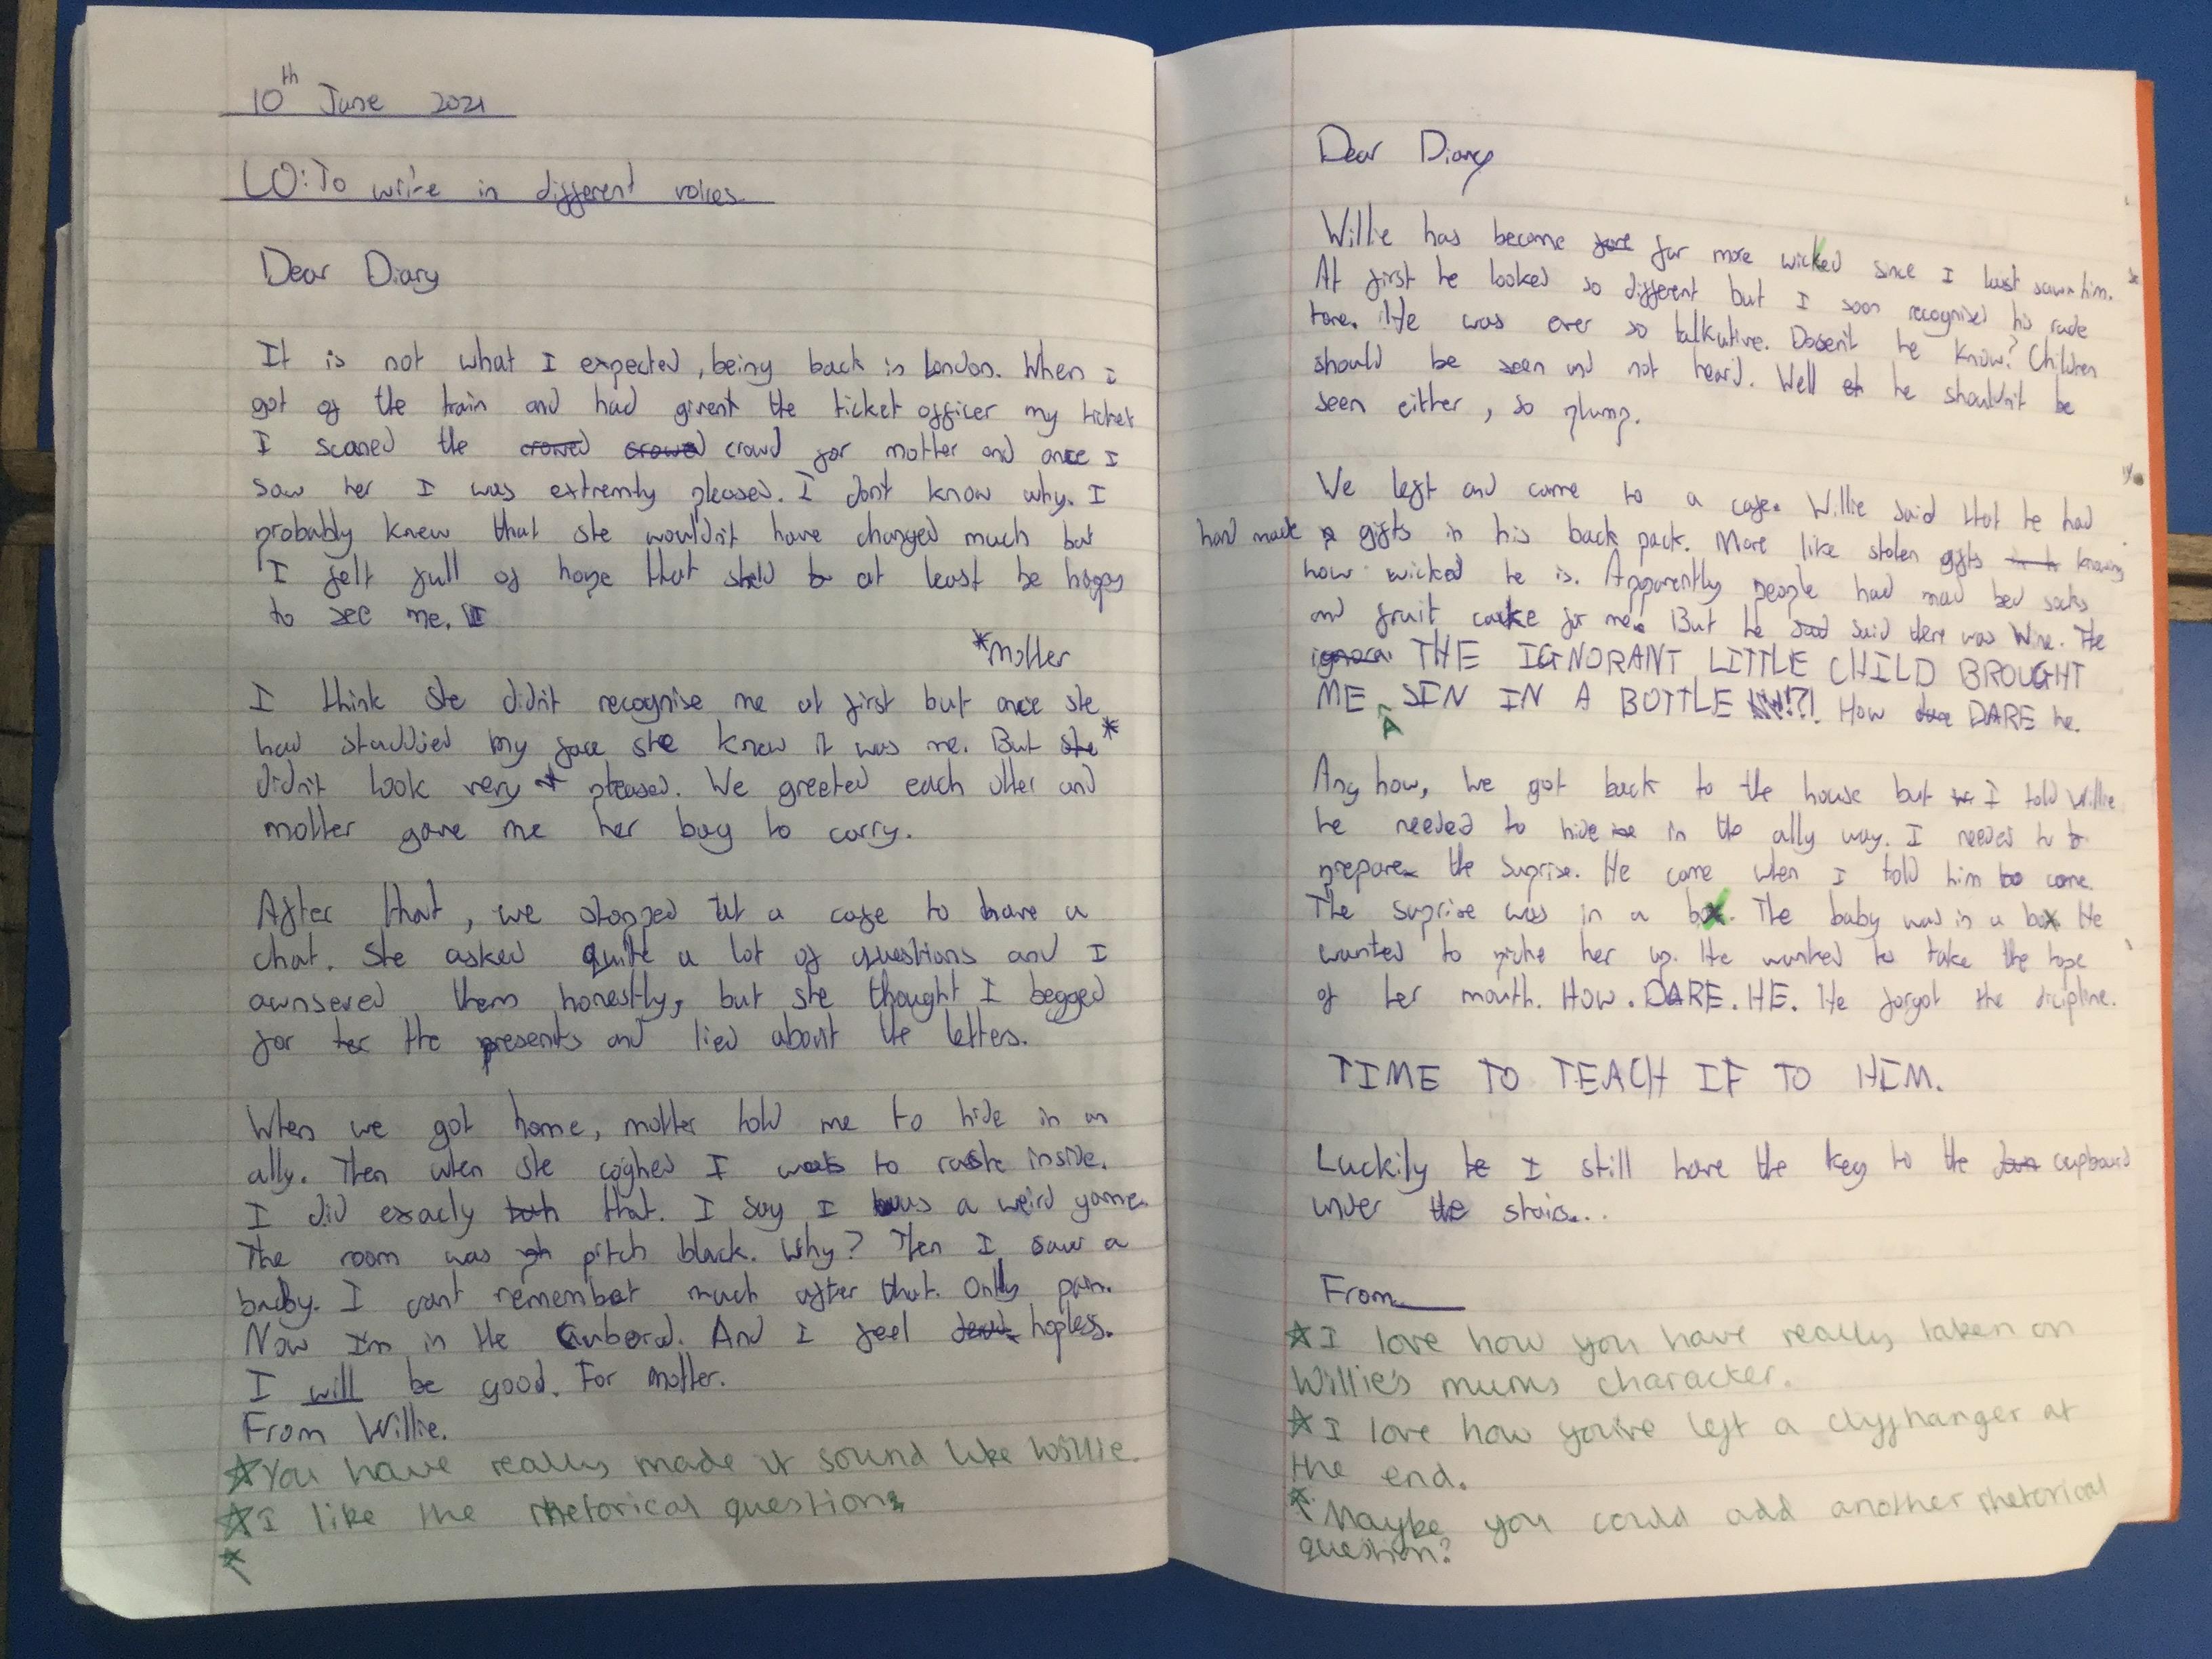 10th June 2021
LO: To write in different voices.
Dear Diary
It is not what I expected, being back in London. When I
got of the train and had givent the ticket officer my ticket
I scaned the crowed crowed crowd for mother and once I
saw her I was extremly pleased. I don't know why. I
probably knew that she wouldn't have changed much but
I felt full of hope that she'd be at least be happy
to see me. I
*mother
I think she didn't recognise me at first but once she
had studdied my face she knew it was me. But she*
didn't look very pleased. We greeted each other and
mother gave me her bag to carry.
After that, we stopped at a cafe to have a
chat. She asked quite a lot of questions and I
awnsered them honestly, but she thought I begged
for her the presents and lied about the letters.
When we got home, mother told me to hide in an
ally. Then when she coghed I was to rush inside.
I did exacly that. I say I was a weird game.
The room was pitch black. Why? Then I saw a
baby. I cant remember much after that. Only pain.
Now I'm in the Cuborad. And I feel hopless.
I will be good. For mother.
From Willie.
☆You have really made it sound like Willie.
☆I like the rhetorical question
☆
Dear Diary
Willie has become far more wicked since I last saw him.
At first he looked so different but I soon recognised his rude
tone. He was ever so talkative. Doesen't he know? Children
should be seen and not heard. Well he shouldn't be
seen either, so plump.
We left and came to a cafe. Willie said that he had
had made gifts in his back pack. More like stolen gifts knowing
how wicked he is. Apparently people had mad bed socks
and fruit cake for me. But he said there was Wine. The
ignoran THE IGNORANT LITTLE CHILD BROUGHT
ME A SIN IN A BOTTLE !?!. How dare DARE he.
Any how, we got back to the house but I told Willie
he needed to hide in the ally way. I needed to
prepare the suprise. He came when I told him to come.
The suprise was in a box. The baby was in a box He
wanted to picke her up. He wanted to take the tape
of her mouth. HOW. DARE. HE. He forgot the dicipline.
TIME TO TEACH IF TO HIM.
Luckily he I still have the key to the cupboard
under the stairs...
From
☆I love how you have really taken on
Willie's mums character.
☆I love how you've left a clyffhanger at
the end.
☆Maybe you could add another rhetorical
question?